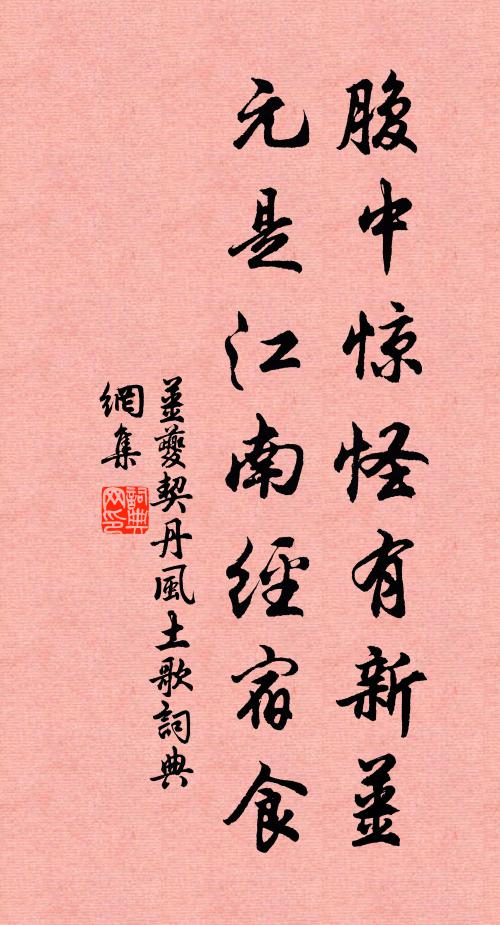 腹中惊怪有新薑
元是江南經宿食
薑夔契丹風土歌詞典
網集
詞典
网印